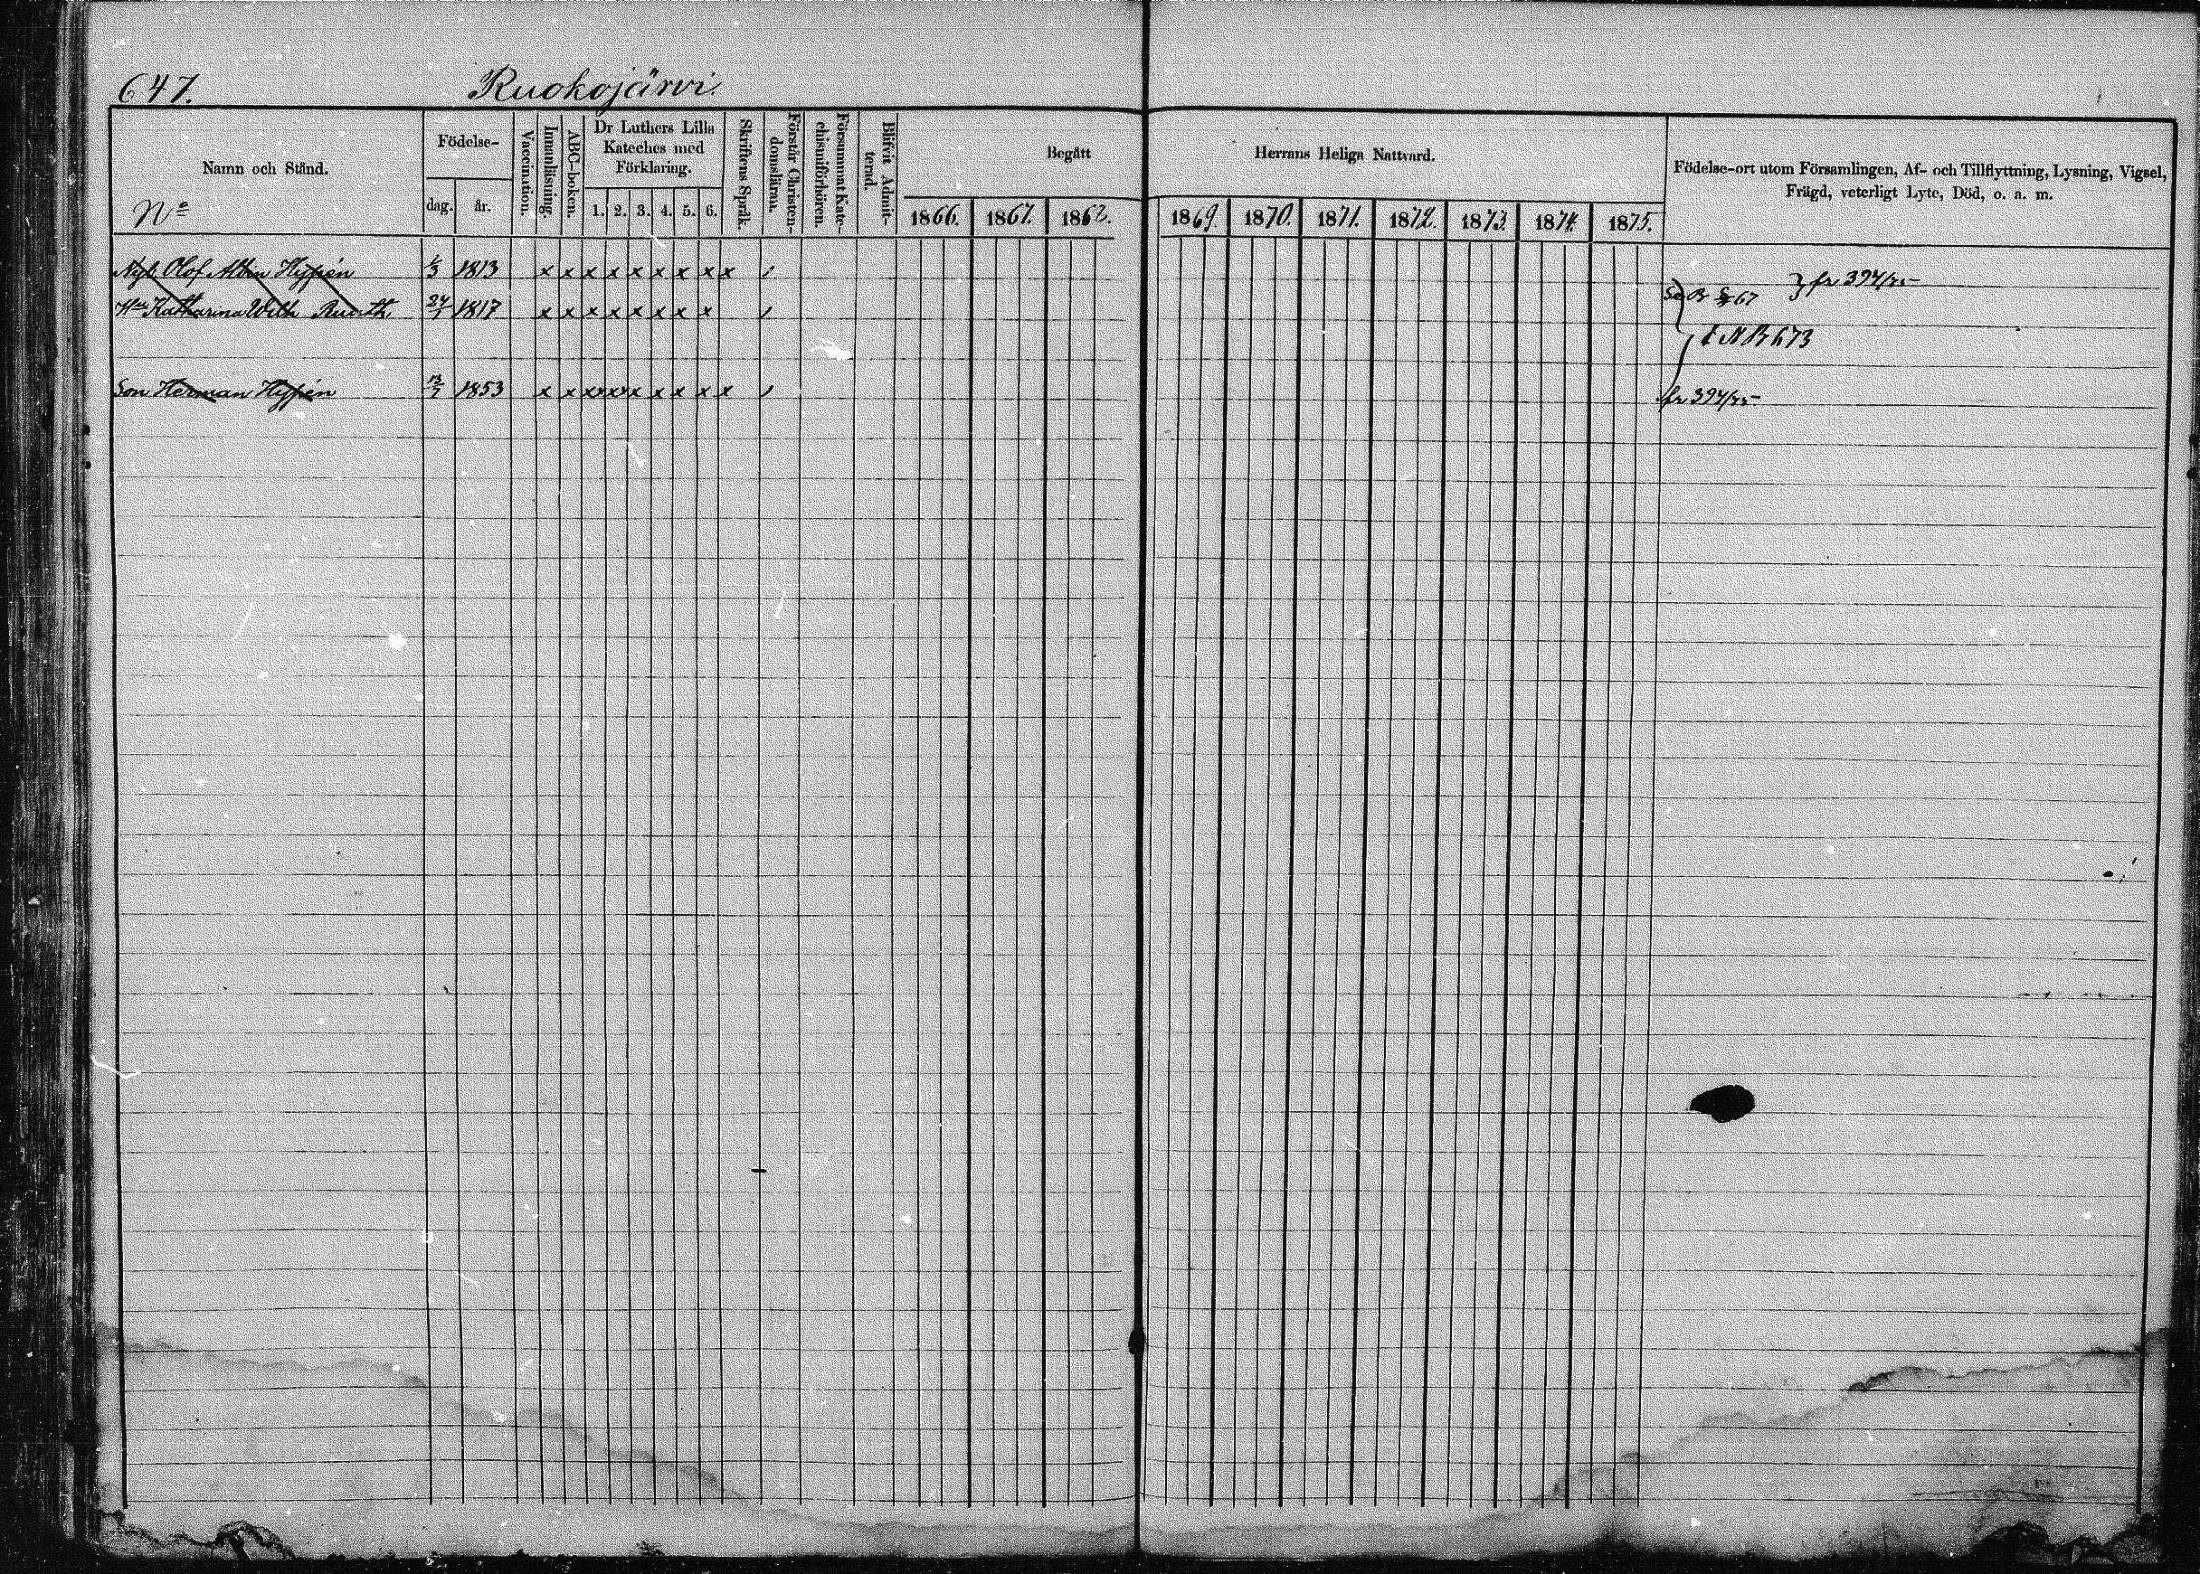 647. Ruokojärvi.
Namn och Stånd.
No
Födelse-
dag. år.
Vaccination.
Innanläsning.
ABC-boken.
Dr Luthers Lilla Kateches med Förklaring.
1. 2. 3. 4. 5. 6.
Skriftens Språk.
Förstår Christendomslärna.
Försummat Katechismiförhören.
Blifvit Admitterad.
Begått Herrans Heliga Nattvard.
1866. 1867. 1868. 1869. 1870. 1871. 1872. 1873. 1874. 1875.
Födelse-ort utom Församlingen, Af- och Tillflyttning, Lysning, Vigsel,
Frägd, veterligt Lyte, Död, o. a. m.
Nyb. Olof Albin Hyppén 1/3 1813 x x x x x x x x x / } fr 394/75
Hu Katharina Wilh 24/1 1817 x x x x x x x x /
t N B 673
Son Herman Hyppén 13/7 1853 x x x x x x x x x / fr 394/75